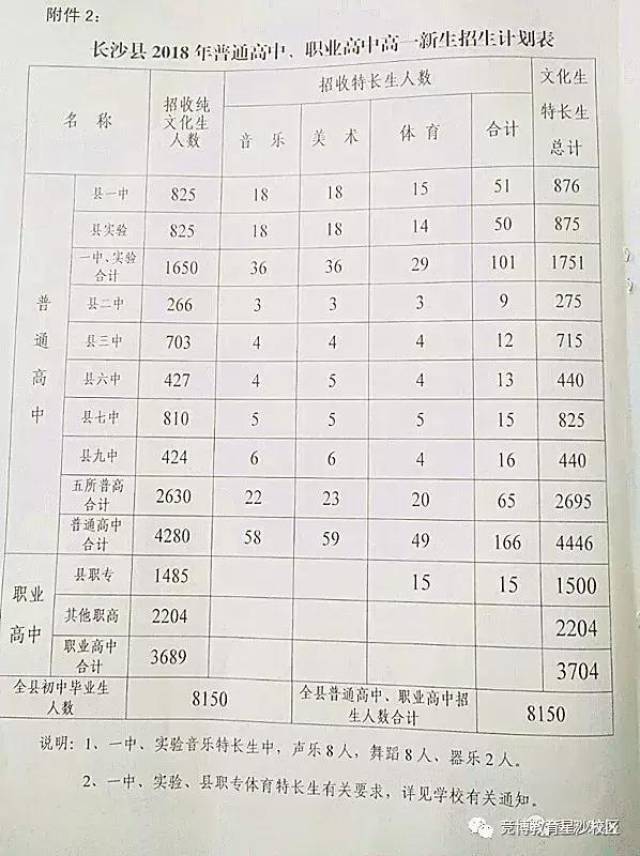 附件2：
长沙县2018年普通高中、职业高中高一新生招生计划表
名 称 招收纯文化生人数 招收特长生人数 文化生特长生总计
音 乐 美 术 体 育 合计
普通高中
县一中 825 18 18 15 51 876
县实验 825 18 18 14 50 875
一中、实验合计 1650 36 36 29 101 1751
县二中 266 3 3 3 9 275
县三中 703 4 4 4 12 715
县六中 427 4 5 4 13 440
县七中 810 5 5 5 15 825
县九中 424 6 6 4 16 440
五所普高合计 2630 22 23 20 65 2695
普通高中合计 4280 58 59 49 166 4446
职业高中
县职专 1485 15 15 1500
其他职高 2204 2204
职业高中合计 3689 3704
全县初中毕业生人数 8150 全县普通高中、职业高中招生人数合计 8150
说明：1、一中、实验音乐特长生中，声乐8人，舞蹈8人、器乐2人。
2、一中、实验、县职专体育特长生有关要求，详见学校有关通知。
竞博教育星沙校区